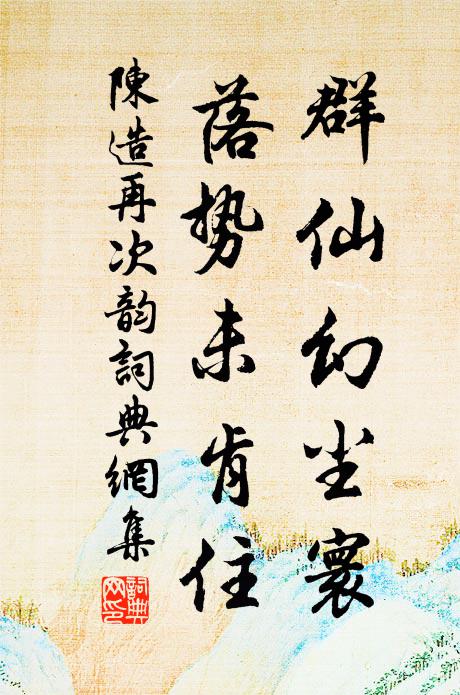 群仙幻尘寰
落势未肯住
陳造再次韵詞典網集
詞典